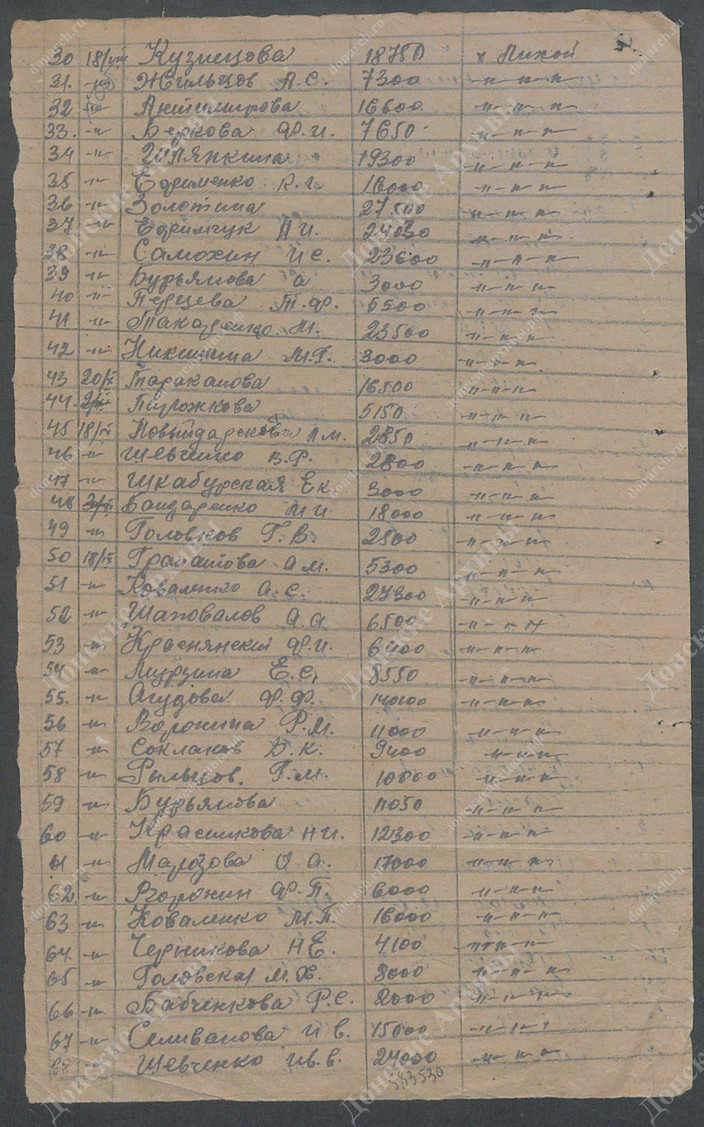 30 18/VIII Кузнецова 18750 х Лихой
31. -"- Жильцов А.С. 7300 -"-"-"-
32 -"- Антимирова 16600 -"-"-"-
33. -"- Беркова Ф.И. 7650 -"-"-"-
34 -"- Шляпкина 19300 -"-"-"-
35 -"- Ефрименко 16000 -"-"-"-
36 -"- Золотина 27500 -"-"-"-
37 -"- Ефримчук П И. -"-"-"-
38 -"- Самохин И С. 23600 -"-"-"-
39 -"- Бурьянова а 3000 -"-"-"-
40 -"- Перцева Т.Ф. 5500 -"-"-"-
41 -"- М. 23500 -"-"-"-
42 -"- Никитина М.Г. 3000 -"-"-"-
43 Тараканова 16500 -"-"-"-
44. Пирожкова 5150 -"-"-"-
45 2850 -"-"-"-
46 -"- Шевченко В.Ф. 2800 -"-"-"-
47 -"- Шкабурская Е к 3000 -"-"-"-
48 Бандаренко М И 18000 -"-"-"-
49 -"- Головков Г. В. 2500 -"-"-"-
50 Гранатова А М. 5300 -"-"-"-
51 -"- Коваленко А. С. 27300 -"-"-"-
52 -"- Шаповалов А А. 6500 -"-"-"-
53 -"- Краснянский Ф.И. 6400 -"-"-"-
54 -"- Мурзина Е.С. 8550 -"-"-"-
55. -"- Агудова Ф.Ф. 14000 -"-"-"-
56 -"- Воронина Р.М. 11000 -"-"-"-
57 -"- Соклаков Б. К. 9400 -"-"-"-
58 -"- Рыльцов. Г.М. 10000 -"-"-"-
59 -"- Бурьянова 11050 -"-"-"-
60 -"- Красникова Н И. 12300 -"-"-"-
61 -"- Марозова О А. 17000 -"-"-"-
62 -"- Воронин Ф.П. 6000 -"-"-"-
63 -"- Коваленко М.П. 16000 -"-"-"-
64. -"- Черникова Н Е. 4100 -"-"-"-
65 -"- Головская М.Х. 8000 -"-"-"-
66 -"- Бабченкова Р.С. 2000 -"-"-"-
67 -"- Селиванова И В. 15000 -"-"-"-
68 -"- Шевченко Ив. В. 24000 -"-"-"-
583530